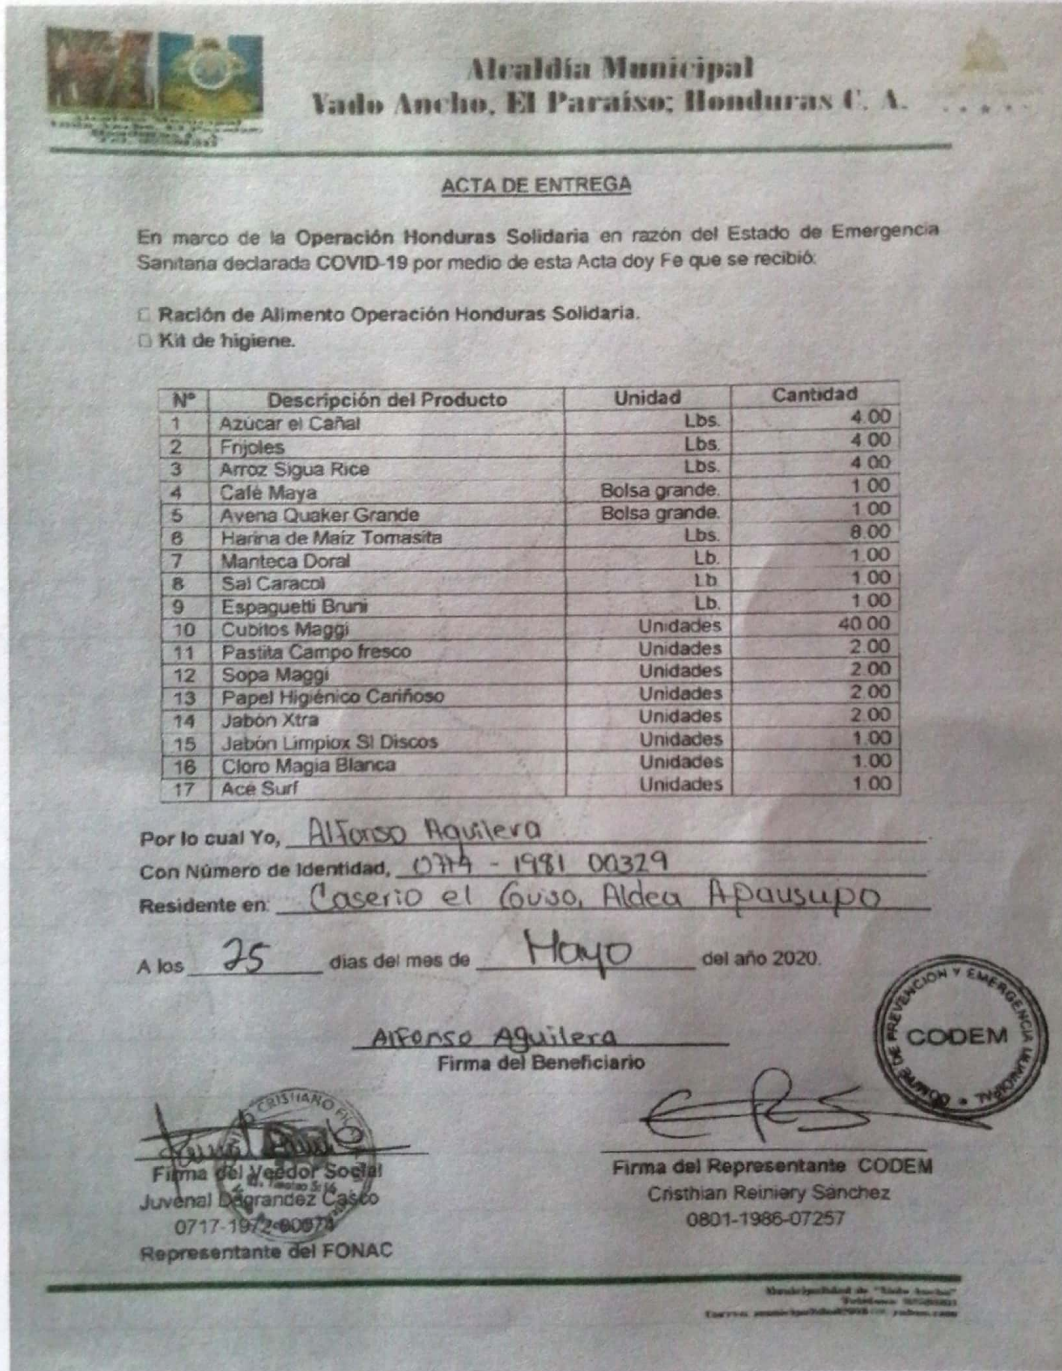 Alcaldía Municipal
Vado Ancho, El Paraíso; Honduras C. A.
ACTA DE ENTREGA
En marco de la Operación Honduras Solidaria en razón del Estado de Emergencia
Sanitaria declarada COVID-19 por medio de esta Acta doy Fe que se recibió:
Ración de Alimento Operación Honduras Solidaria.
Kit de higiene.
N° Descripción del Producto Unidad Cantidad
1 Azúcar el Cañal Lbs. 4.00
2 Frijoles Lbs. 4.00
3 Arroz Sigua Rice Lbs. 4.00
4 Café Maya Bolsa grande. 1.00
5 Avena Quaker Grande Bolsa grande. 1.00
6 Harina de Maíz Tomasita Lbs. 8.00
7 Manteca Doral Lb. 1.00
8 Sal Caracol Lb 1.00
9 Espaguetti Bruni Lb. 1.00
10 Cubitos Maggi Unidades 40.00
11 Pastita Campo fresco Unidades 2.00
12 Sopa Maggi Unidades 2.00
13 Papel Higiénico Cariñoso Unidades 2.00
14 Jabón Xtra Unidades 2.00
15 Jabón Limpiox SI Discos Unidades 1.00
16 Cloro Magia Blanca Unidades 1.00
17 Ace Surf Unidades 1.00
Por lo cual Yo, Alfonso Aguilera
Con Número de Identidad, - 1981 00329
Residente en: Caserio el Aldea Apausupo
A los 25 días del mes de Mayo del año 2020.
Alfonso Aguilera
Firma del Beneficiario
COMITE DE PREVENCION Y EMERGENCIA MUNICIPAL
CODEM
CRISTIANO
Firma del Veedor Social
Juvenal Dagrandez Casco
0717-1972-
Representante del FONAC
Firma del Representante CODEM
Cristhian Reiniery Sánchez
0801-1986-07257
Municipalidad de "Vado Ancho"